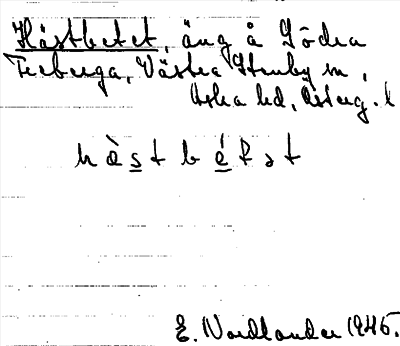 Hästbetet, äng å Södra
Freberga, Västra Stenby sn,
Aska hd, Österg. l
h ä s t b é t ə t
E. Nordlander 1946.